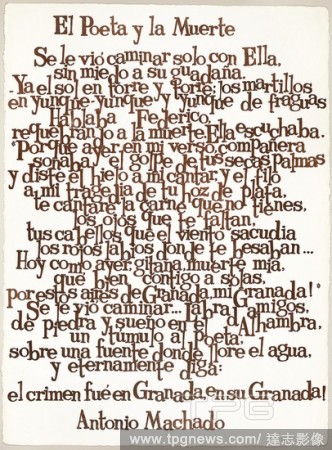 El Poeta y la Muerte
Se le vió caminar solo con Ella,
sin miedo a su guadaña.
-Ya el sol en torre y torre; los martillos
en yunque-yunque y yunque de fraguas
Hablaba Federico,
requebrando a la muerte. Ella escuchaba.
"Porque ayer en mi verso, compañera
sonaba el golpe de tus secas palmas
y diste el hielo a mi cantar, y el filo
a mi tragedia de tu hoz de plata,
te cantaré la carne que no tienes,
los ojos que te faltan,
tus cabellos que el viento sacudía
los rojos labios donde te besaban...
Hoy como ayer, gitana, muerte mía,
que bien contigo a solas,
por estos aires de Granada, mi Granada!"
Se le vió caminar... Labrad amigos,
de piedra y sueño en el d'Alhambra,
un túmulo al Poeta,
sobre una fuente donde llore el agua,
y eternamente diga:
el crimen fué en Granada, en su Granada!
Antonio Machado
TPG
www.tpgnews.com/ 達志影像